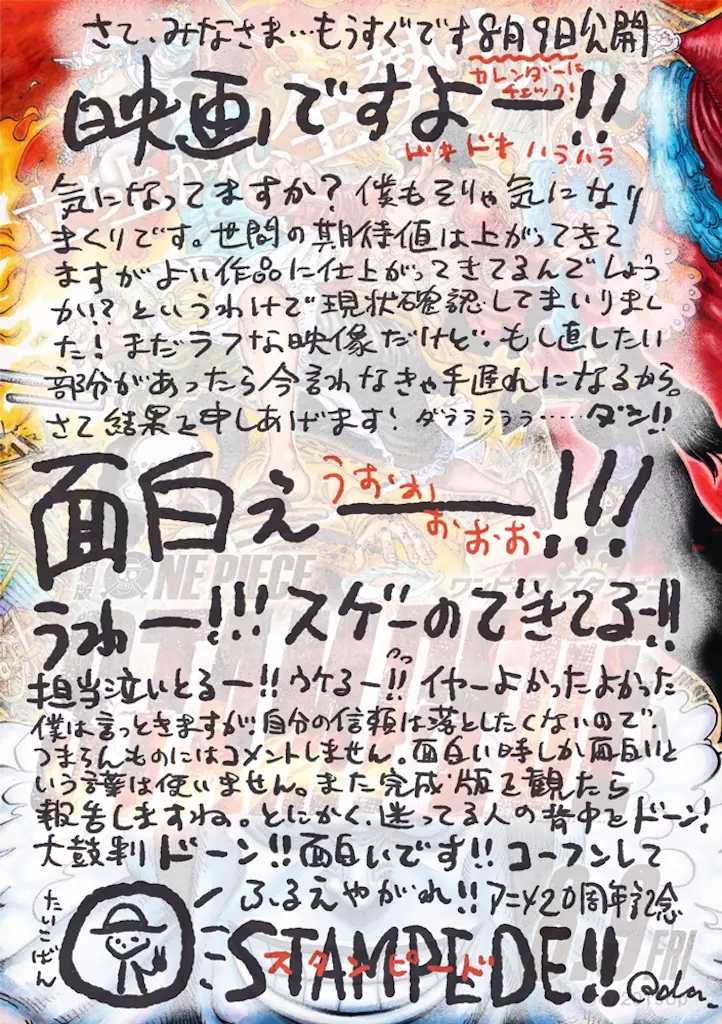 さて、みなさま…もうすぐです8月9日公開
カレンダーに
チェック!
映画ですよー!!
ドキドキハラハラ
気になってますか?僕もそりゃ気になり
まくりです。世間の期待値は上がってきて
ますがよい作品に仕上がってきてるんでしょう
か!?というわけで現状確認してまいりまし
た!まだラフな映像だけど、もし直したい
部分があったら今言わなきゃ手遅れになるから。
さて結果を申しあげます!ダララララ……ダン!!
面白えー!!!
うおぉぉおお
うわー!!!スゲーのできてるー!!
担当泣いとるー!!ウケるー(笑)!!イヤーよかったよかった
僕は言っときますが、自分の信頼は落としたくないので、
つまらんものにはコメントしません。面白い時しか面白いと
いう言葉は使いません。また完成版を観たら
報告しますね。とにかく、迷ってる人の背中をドーン!
太鼓判ドーン!!面白いです!!コーフンして
ふるえやがれ!!アニメ20周年記念
たいこばん
STAMPEDE!!
スタンピード
ONE PIECE